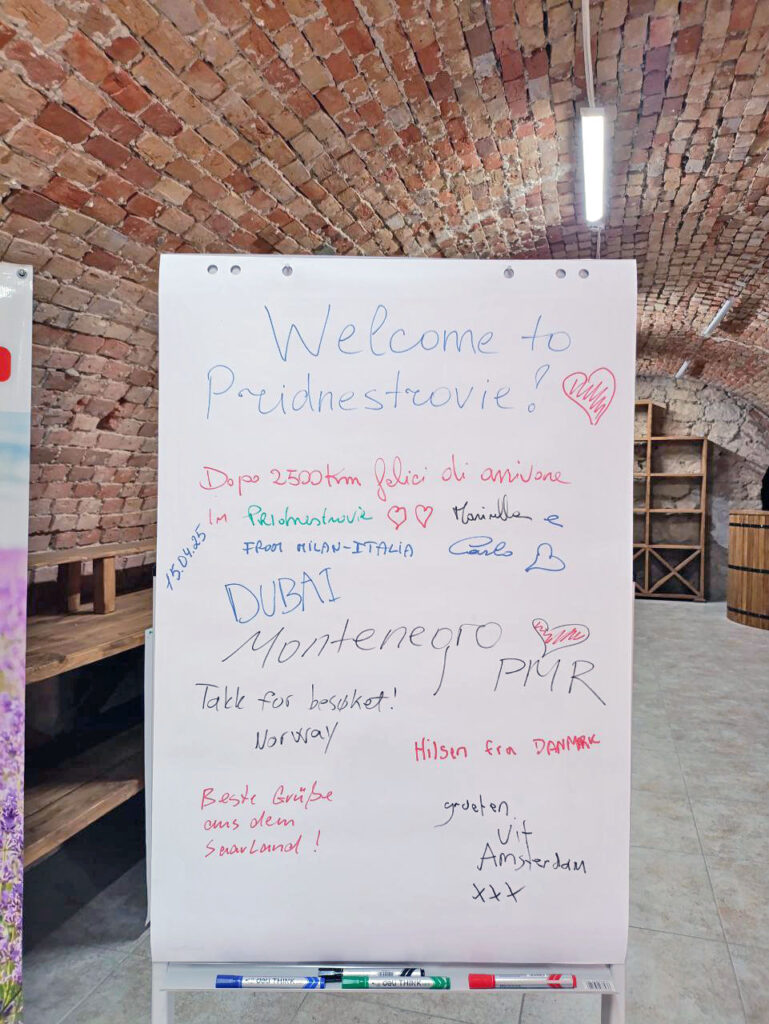 Welcome to
Pridnestrovie!
Dopo 2500km felici di arrivare
in Pridnestrovie Marinella e
FROM MILAN-ITALIA Carlo
15.04.25
DUBAI
Montenegro
PMR
Takk for besøket!
Norway
Hilsen fra DANMARK
Beste Grüße
aus dem
Saarland!
groeten
Uit
Amsterdam
xxx
deli THINK
deli THINK